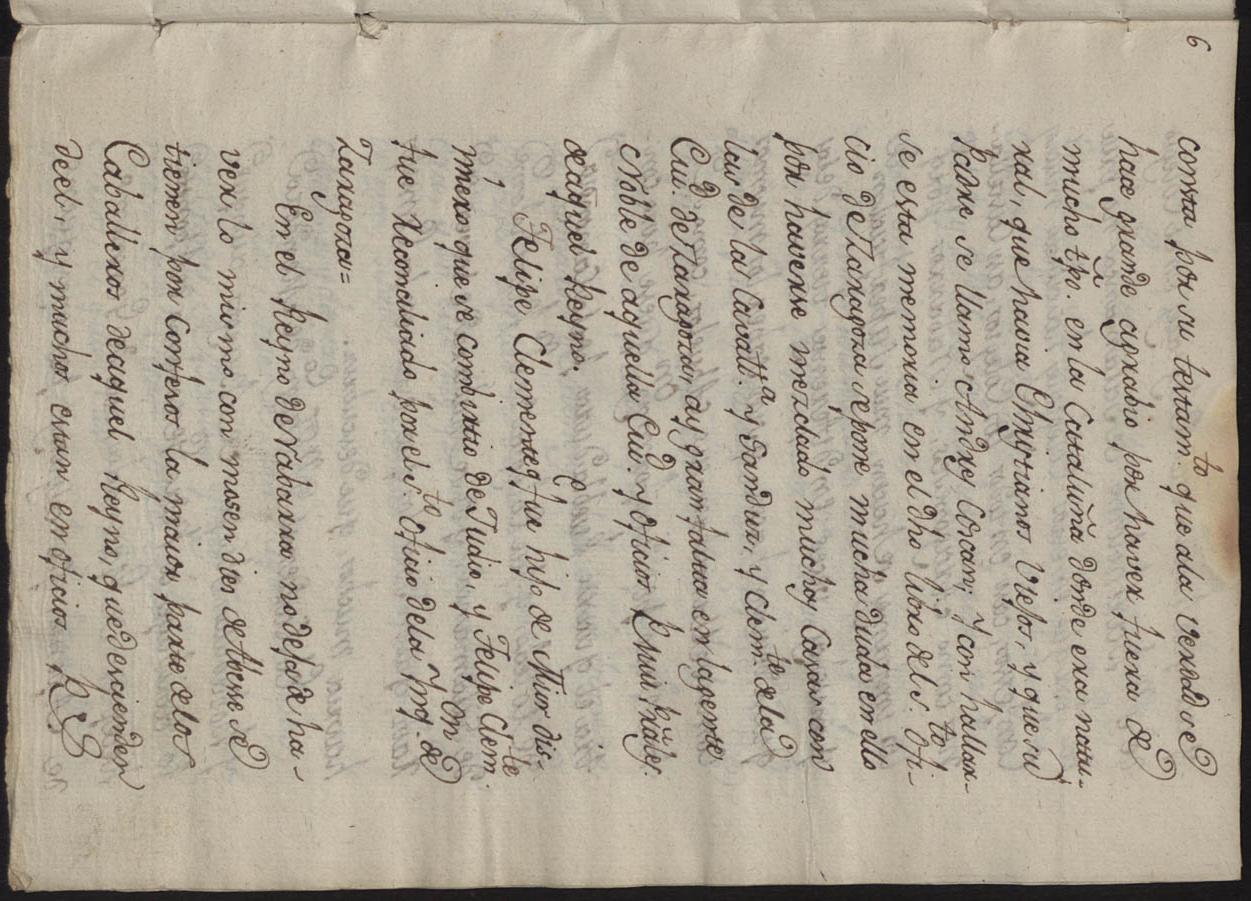 6
consta por su testam.to que ala verdad se
hace grande agrabio por haver fuera de
mucho tpō. en la Cataluña donde era natu-
ral, que havia Chrystianos Viejos, y que su
Padre se llamo Andres Corcan; y con hallar-
se esta memoria en el dho libro del s.to Ofi-
cio de Zaragoza se pone mucha duda en ello
por haverse mezclado muchos Casas con
las de la Cavall.a y Gandia, y Clem.te dela
Ciu.d de Zaragoza, as gran falta en la gente
Noble de aquella Ciu.d y oficios Principales
de aquel Reyno.
Felipe Clemente fue hijo de Mior dis-
minero que se combirtio de Judio, y Felipe Clem.te
fue Reconciliado por el s.to Oficio dela Ynq.on de
Zaragoza=
En el Reyno de Nabarra no deja de ha-
ver lo mismo con mosen dios de Abese se
tienen por confesos la maior parte de los
Caballeros de aquel Reyno, que descienden
de el, y muchos estan en oficios R.s